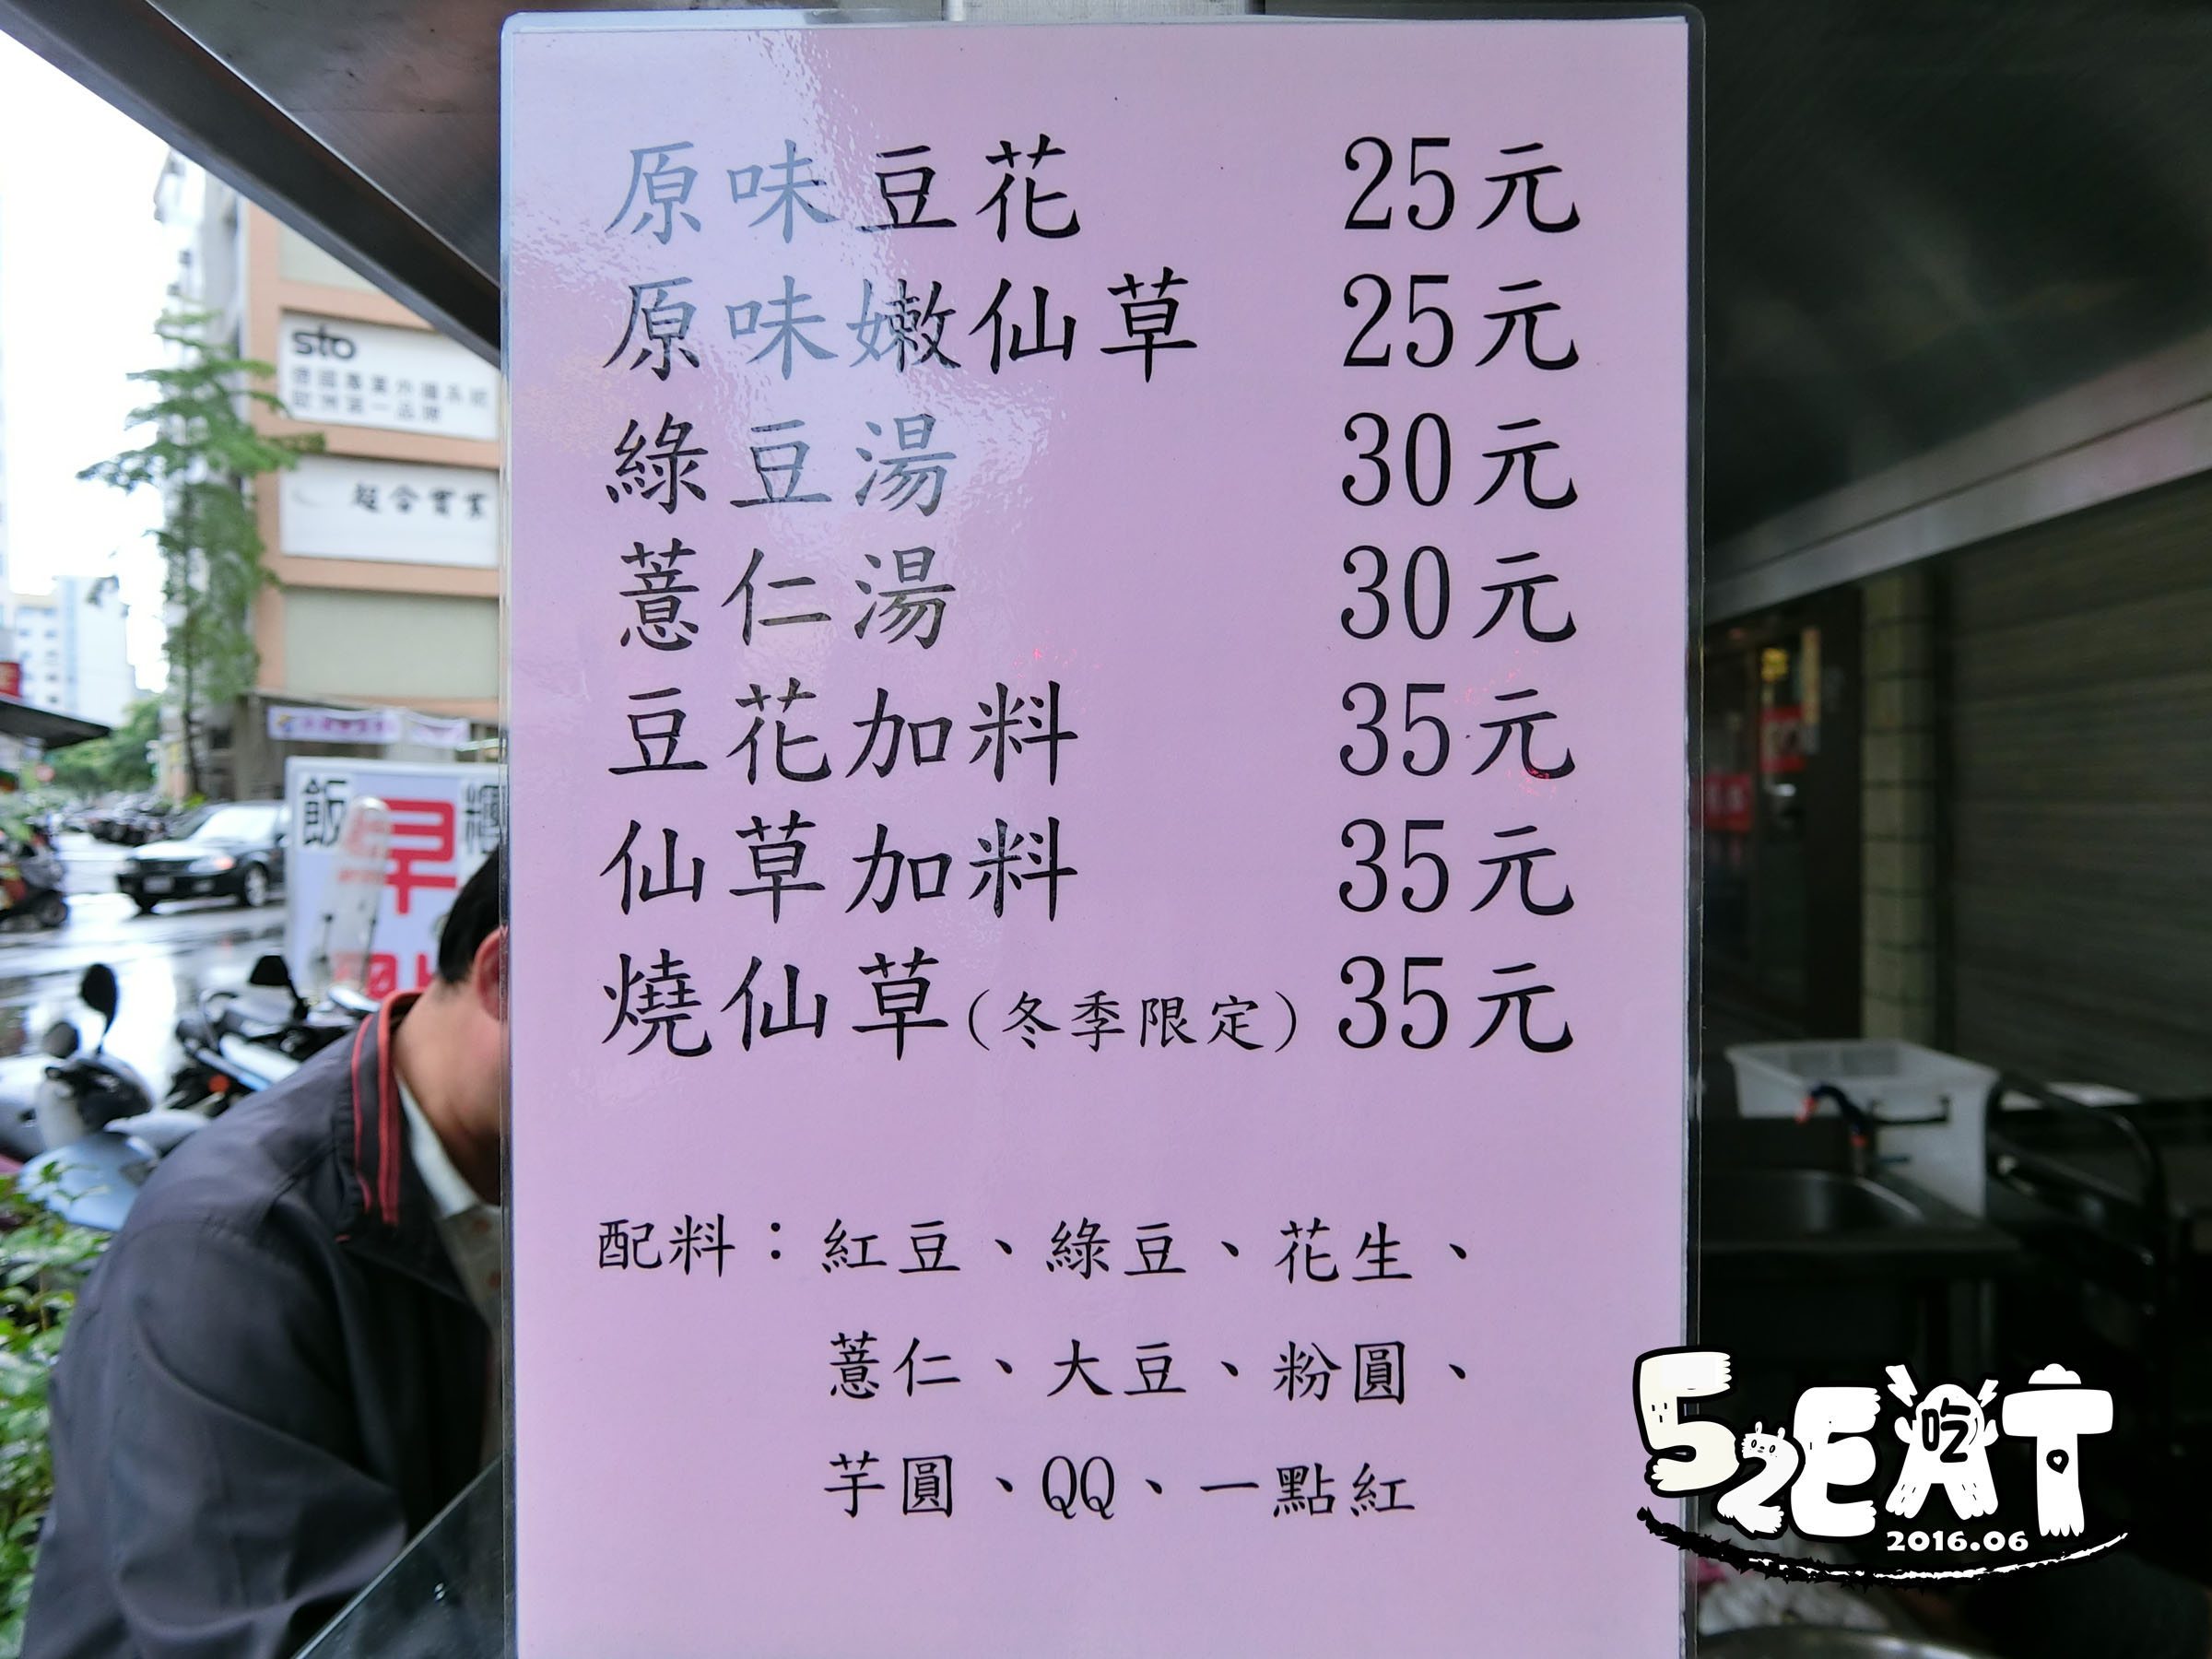 原味豆花 25元
原味嫩仙草 25元
綠豆湯 30元
薏仁湯 30元
豆花加料 35元
仙草加料 35元
燒仙草(冬季限定) 35元
配料：紅豆、綠豆、花生、
薏仁、大豆、粉圓、
芋圓、QQ、一點紅
sto
德國專業外牆系統
歐洲第一品牌
超合實業
飯
早
糰
52EAT
吃
2016.06